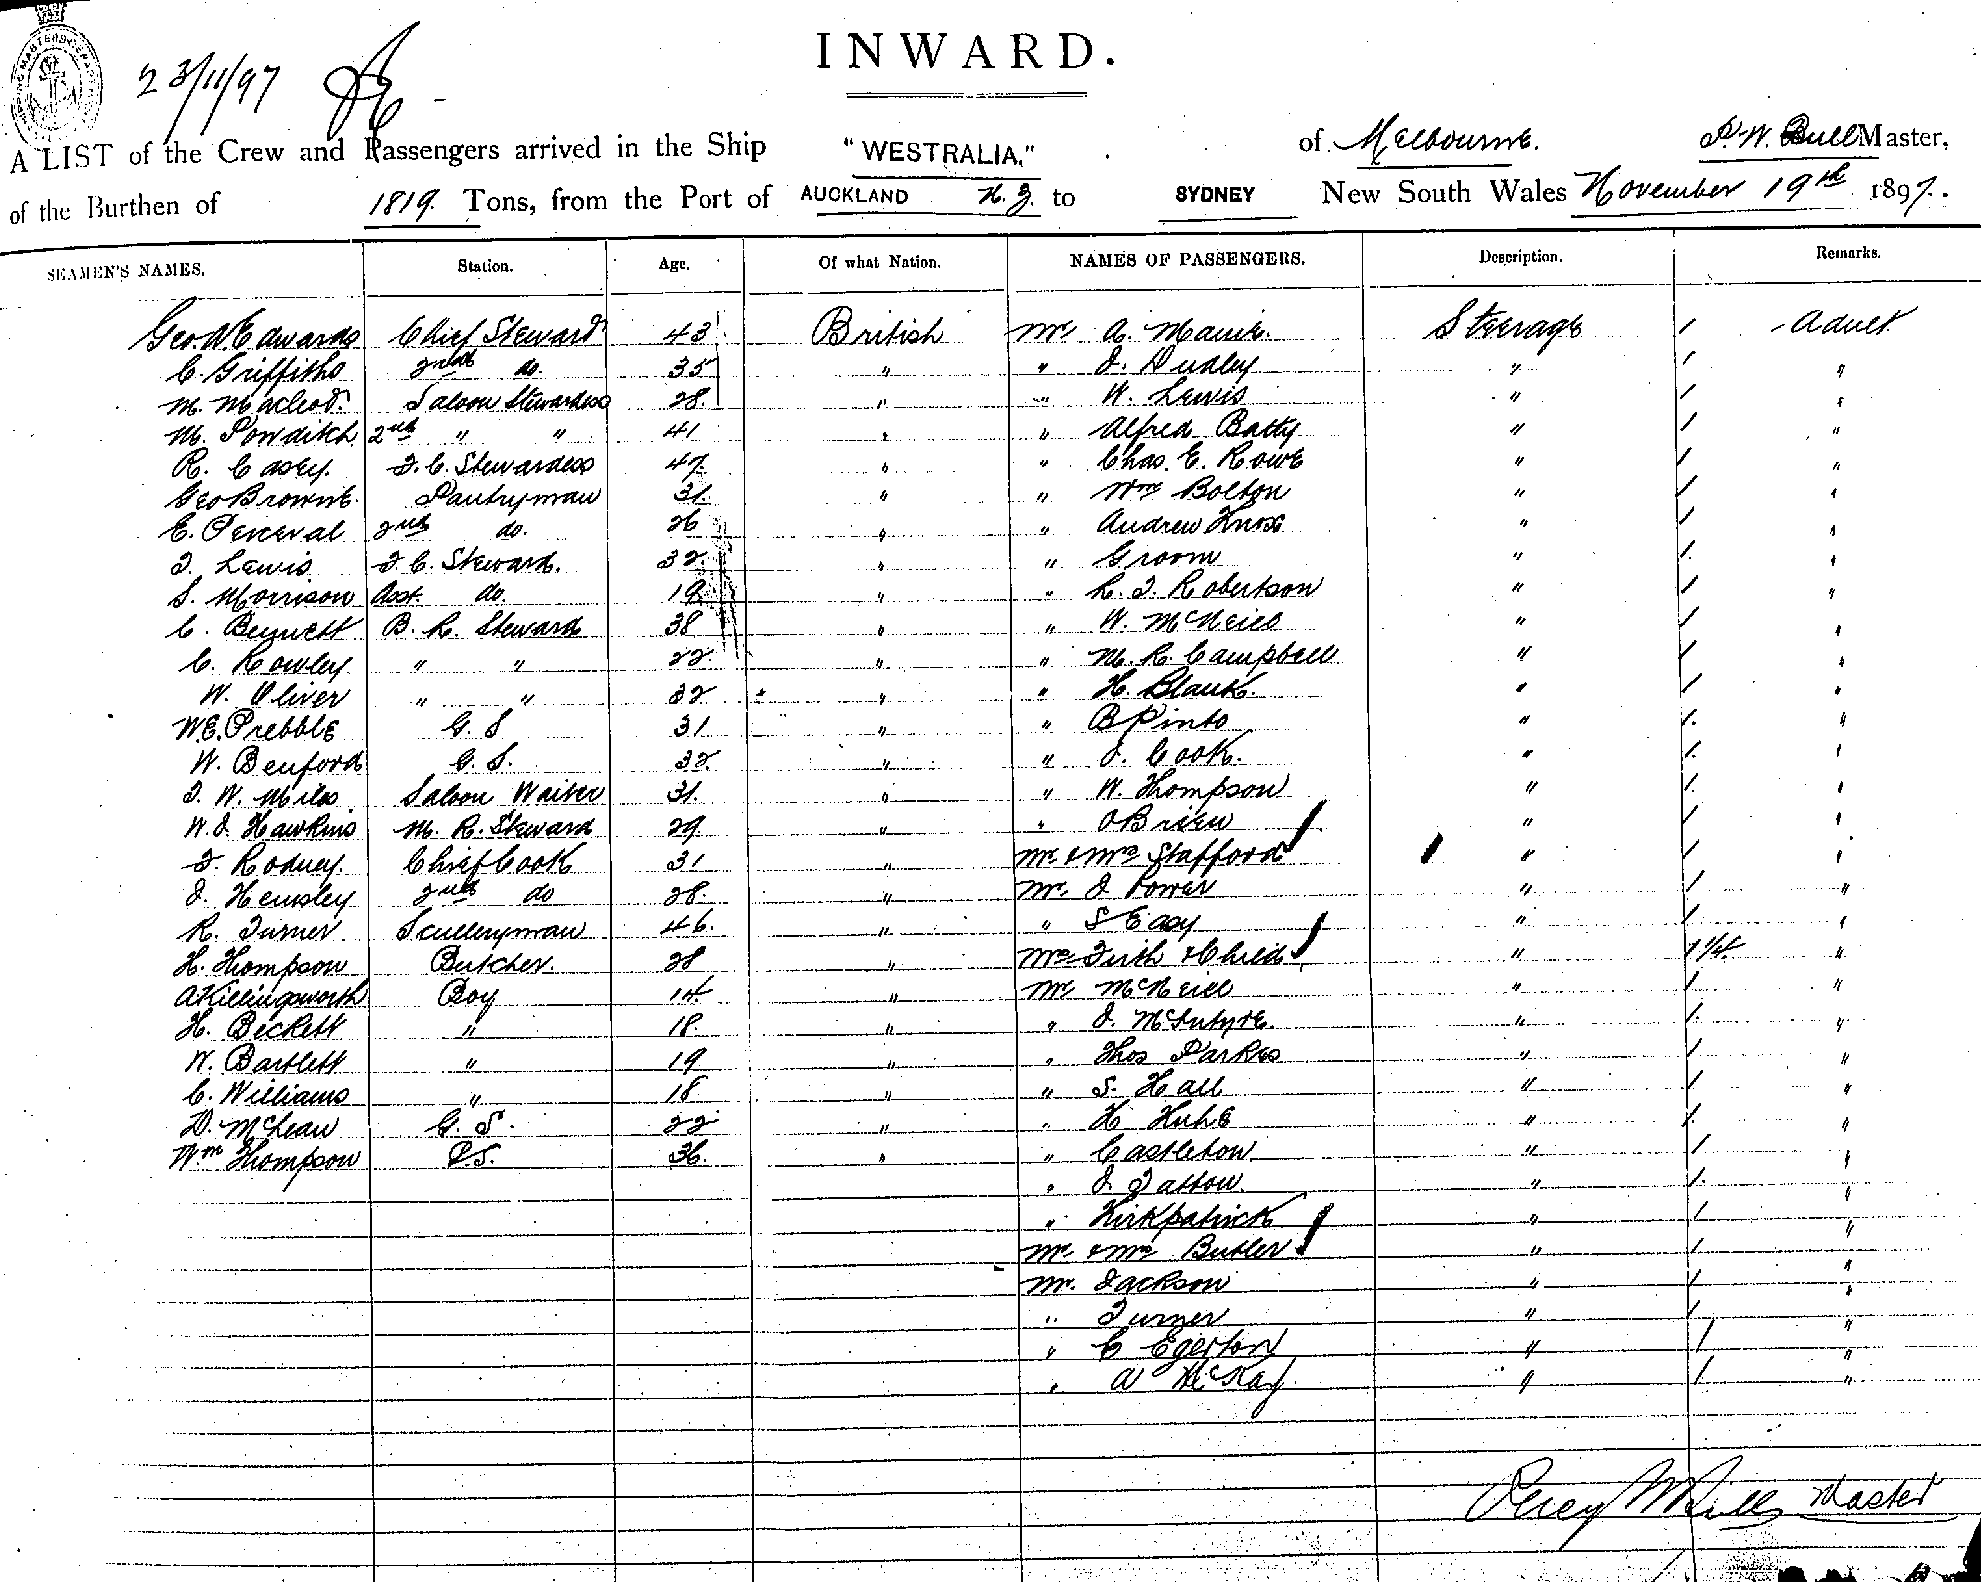 23/11/97
INWARD.
A LIST of the Crew and Passengers arrived in the Ship "WESTRALIA," of Melbourne. P. W. Bull Master,
of the Burthen of 1819 Tons, from the Port of AUCKLAND N.Z. to SYDNEY New South Wales November 19th 1897.
SEAMEN'S NAMES. Station. Age. Of what Nation. NAMES OF PASSENGERS. Description. Remarks.
Geo. W. Edwards Chief Steward 43 British Mr A. Steerage 1 Adult
C. Griffiths 2nd do. 35 " " J. Dudley " 1 "
M. Macleod. Saloon Stewardess 28. " " W. Lewis " 1 "
M. Powditch 2nd " " 41 " " Alfred Batty " 1 "
R. Casey. F.C. Stewardess 47. " " Chas. E. Rowe " 1 "
Geo Browne. Pantryman 31. " " Wm Bolton " 1 "
E. Perceval 2nd do. 26 " " Andrew Knox " 1 "
T. Lewis F.C. Steward. 32. " " Groom " 1. "
S. Morrison Asst. do. 19 " " R. T. Robertson " 1 "
C. Bennett B. R. Steward 38 " " W. McNeill " 1 "
C. Rowley " " 22. " " M. R. Campbell " 1 "
W. Oliver " " 32 " " H. Blank. " 1 "
W.E. Prebble G. S 31 " " B Pinto " 1. "
W. Benford G. S. 32. " " J. Cook. " 1. "
T. W. Miles Saloon Waiter 31. " " W. Thompson " 1. "
W. J. Hawkins M. R. Steward 29 " " OBrien " 1 "
T. Rodney. Chief Cook 31 " Mr. & Mrs Stafford " 1 "
J. Hemsley 2nd do 28. " Mr. J Power " 1 "
R. Turner Sculleryman 46. " " S Easy " 1 "
H. Thompson Butcher. 28 " Mrs Firth & Child " 1 1/4. "
A Killingsworth Boy 14 " Mr McNeill " 1 "
H. Beckett " 18. " " J. McIntyre. " 1. "
W. Bartlett " 19 " " Thos Parkes " 1 "
C. Williams " 18 " " S. Hall " 1 "
D. McLean G. S. 22 " " H " 1. "
Wm Thompson P.S. 36. " " Castleton " 1 "
" J Tattow. " 1. "
" Kirkpatrick " 1 "
Mr. & Mrs Butler " 1 "
Mr. Jackson " 1 "
" Turner " 1 "
" C Egerton " 1 "
" A McKay " 1 "
Master